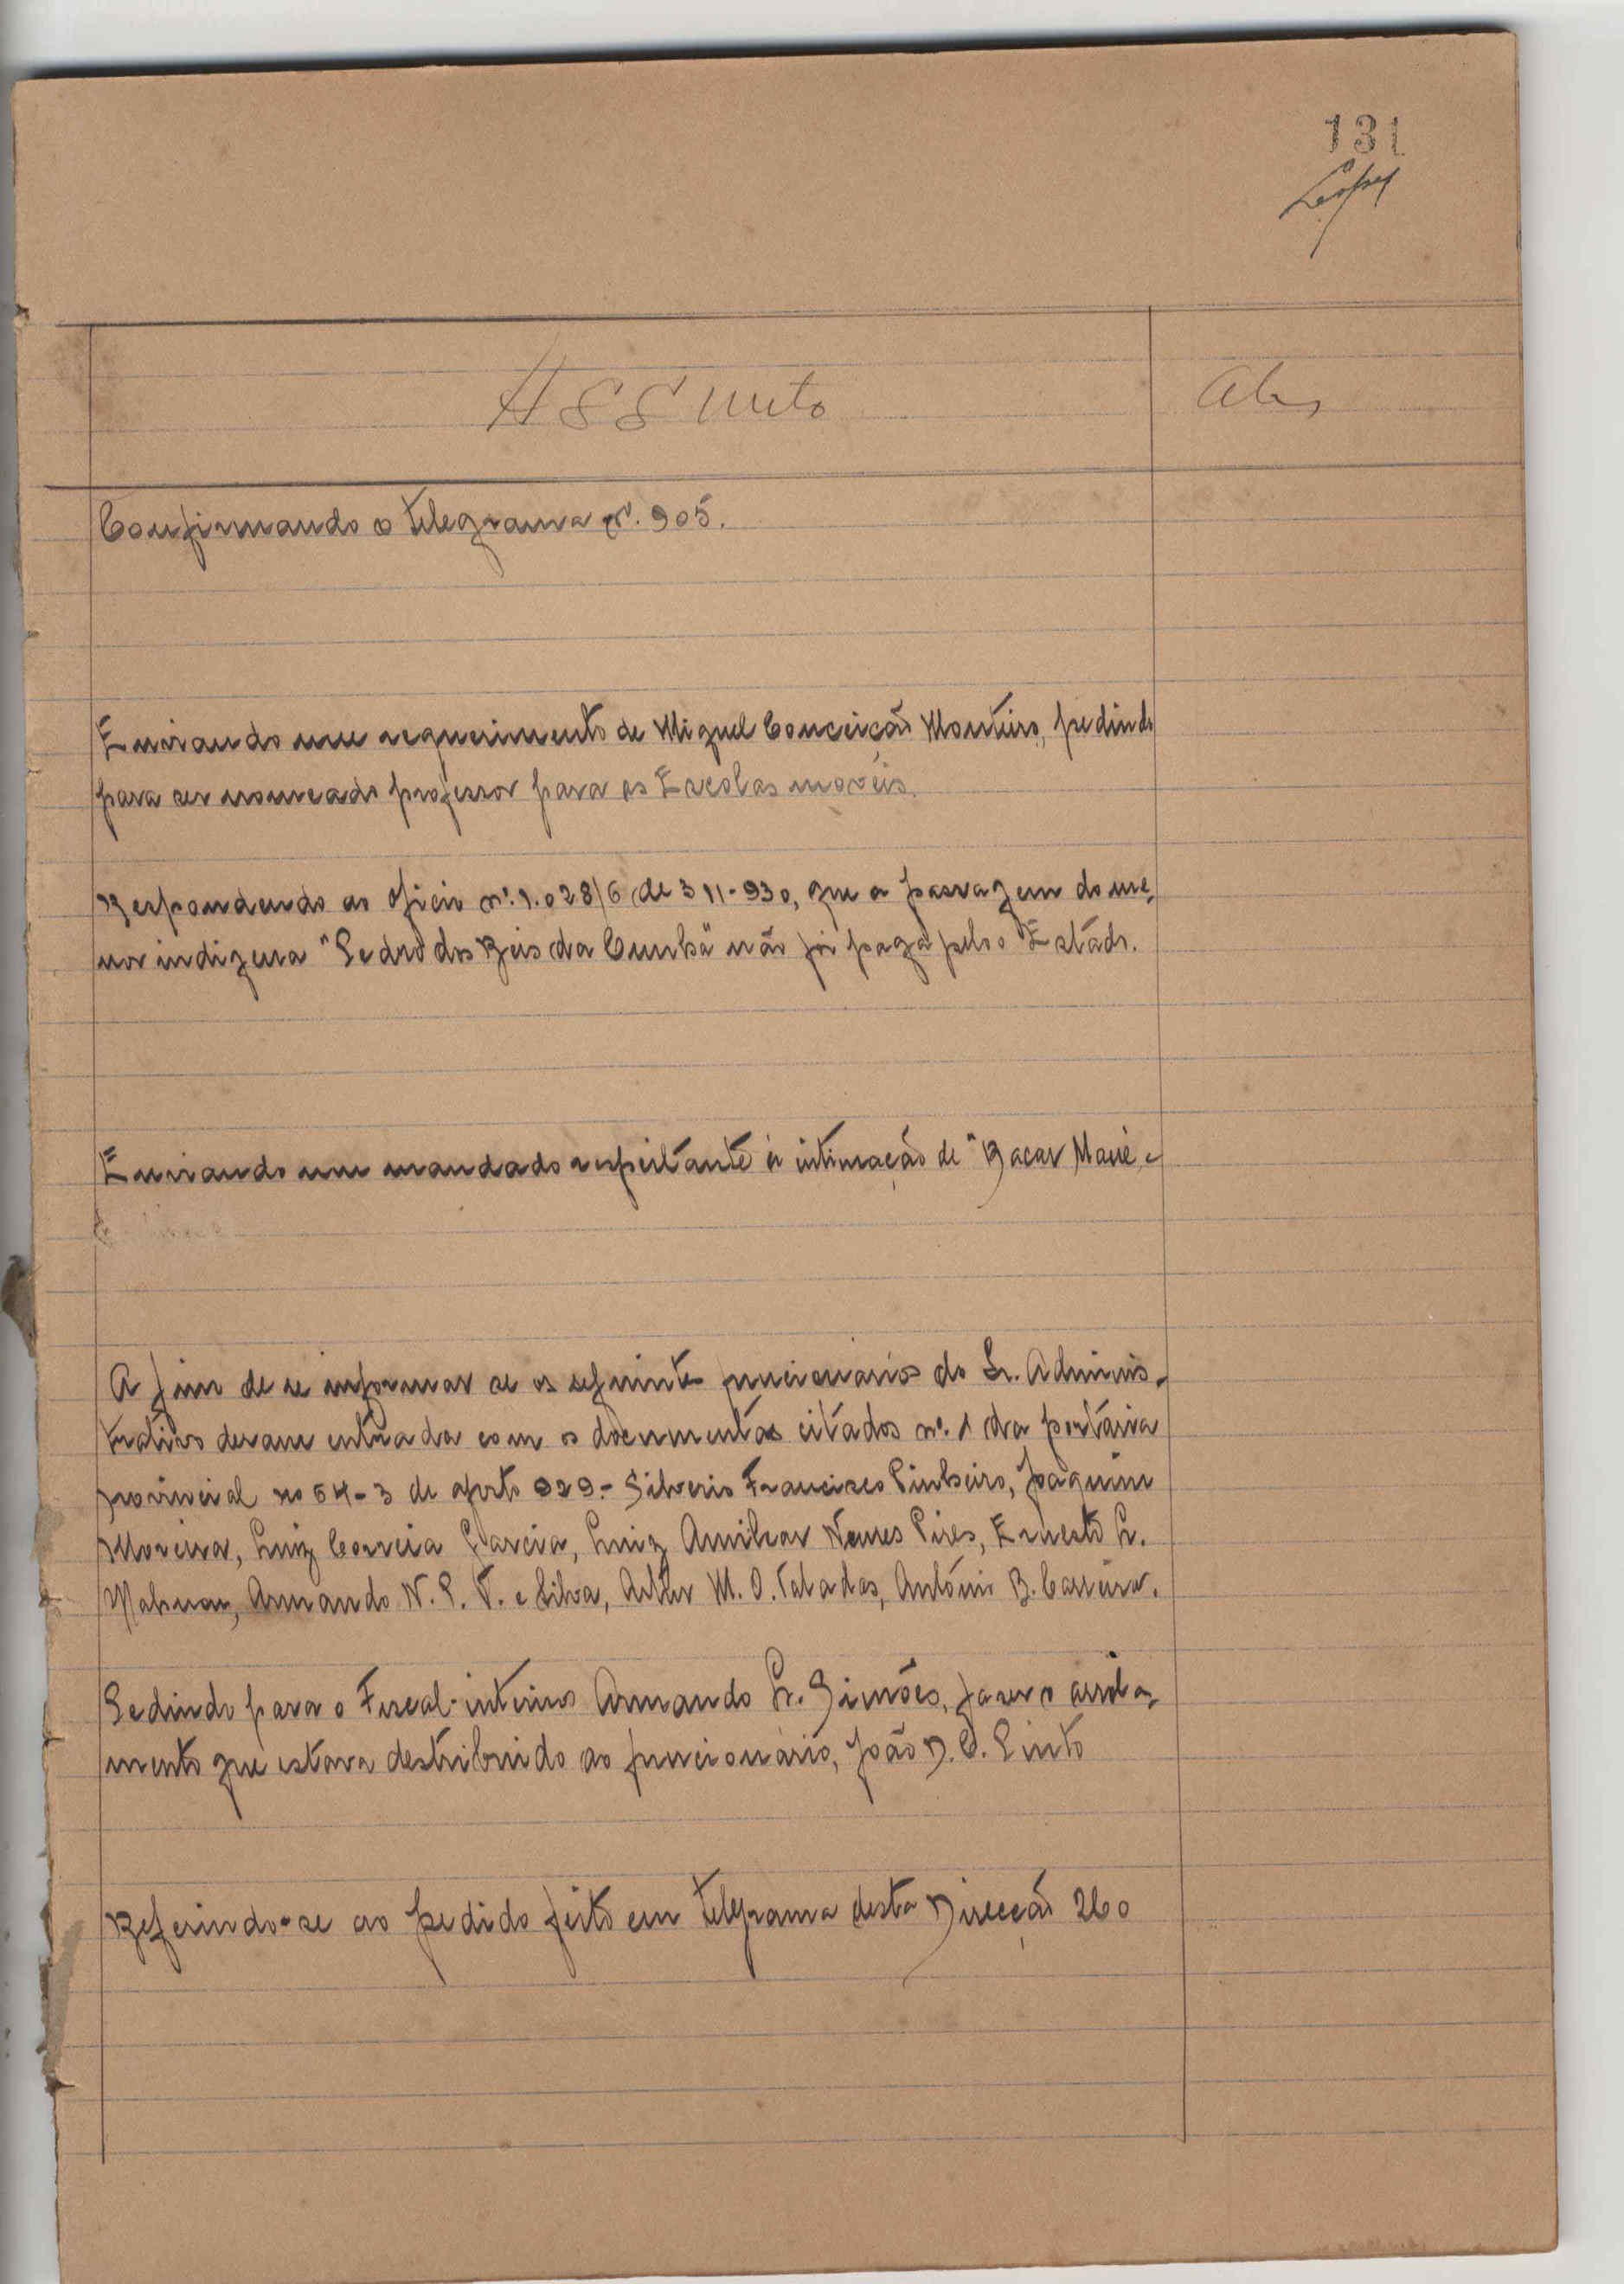 131
Lopes
Assunto
Obs
Confirmando o telegrama nº. 905.
Enviando um requerimento de Miguel Conceição Monteiro, pedindo
para ser nomeado professor para as Escolas moveis.
Respondendo ao oficio nº. 1.028/6 de 3 11-930, que a passagem do me-
nor indigena "Pedro dos Reis da Cunha" não foi paga pelo o Estado.
Enviando um mandado respeitante á intimação de "Bacar Mané"
A fim de se informar se os seguintes funcionarios do Q. Adminis-
trativo deram entrada com os documentos citados nº. 1 da portaria
provincial no 54-3 de agosto 929.- Silverio Francisco Pinheiro, Joaquim
Moreira, Luiz Correia Garcia, Luiz Amilcar Nunes Pires, Ernesto
Armando N. P. V. e Silva, Artur M. O. António B. Carreira.
Pedindo para o Fiscal-interino Armando Simões, fazer o arrola-
mento que estava destribuido ao funcionário, João D. C. Pinto
Referindo-se ao pedido feito em telegrama desta Direcção 260